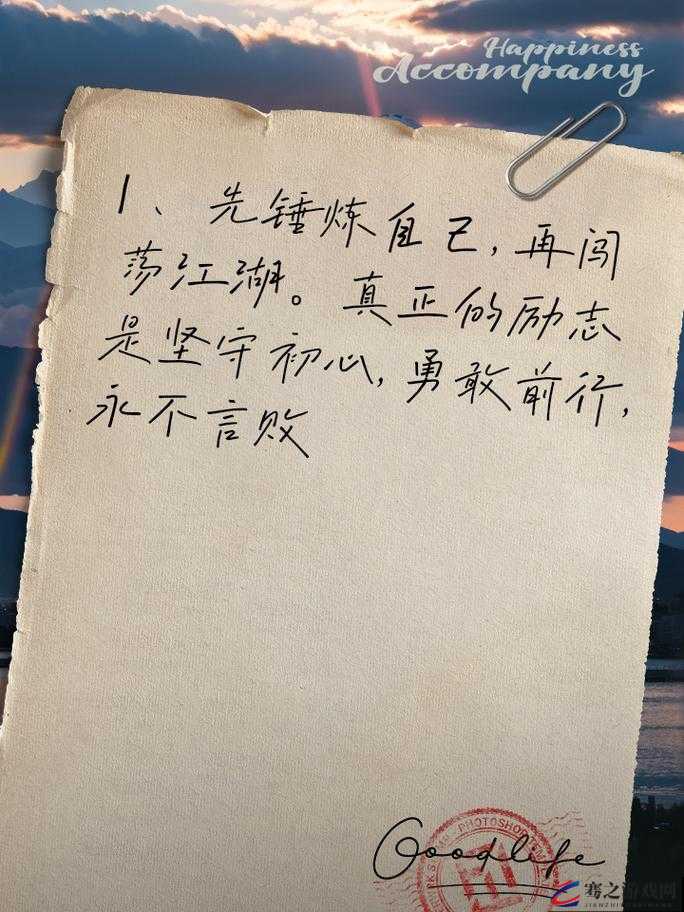 Happiness
Accompany
1、先锤炼自己,再闯
荡江湖。真正的励志
是坚守初心,勇敢前行,
永不言败
PHOTOSHOP
Goodlife
骞之游戏网